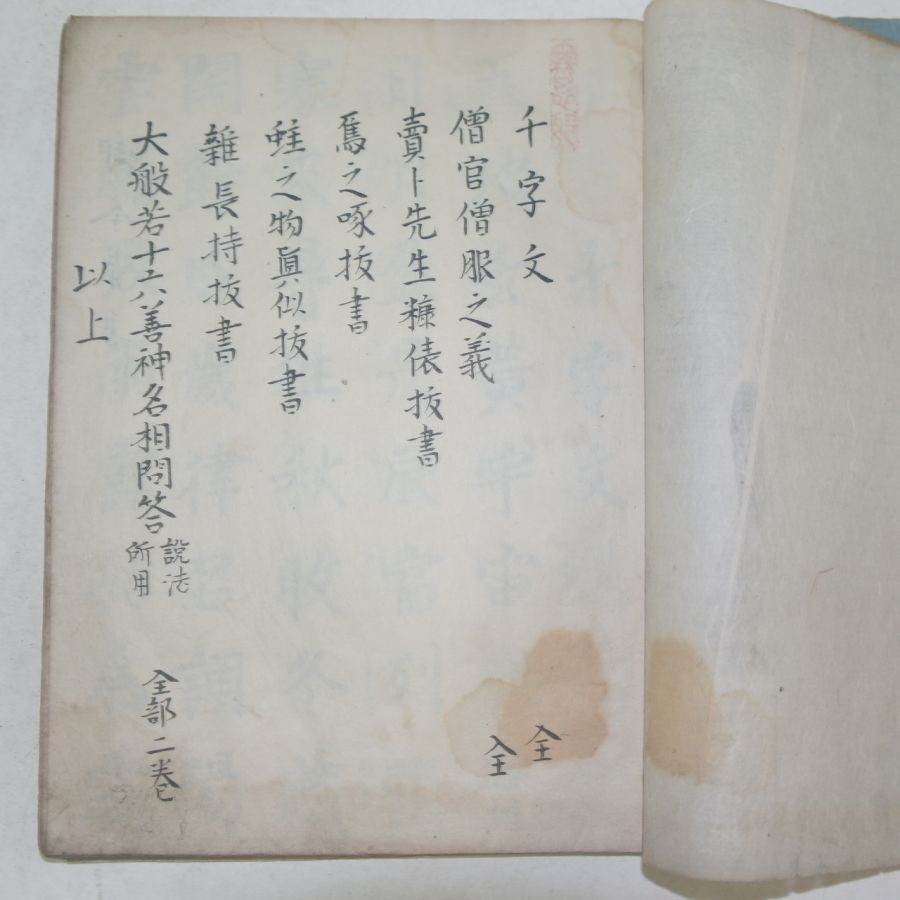 千字文 全
僧官僧服之義 全
賣卜先生糠俵抜書
為之啄抜書
蛙之物真似抜書
雑長持抜書
大般若十六善神名相問答 説法所用 全部二巻
以上